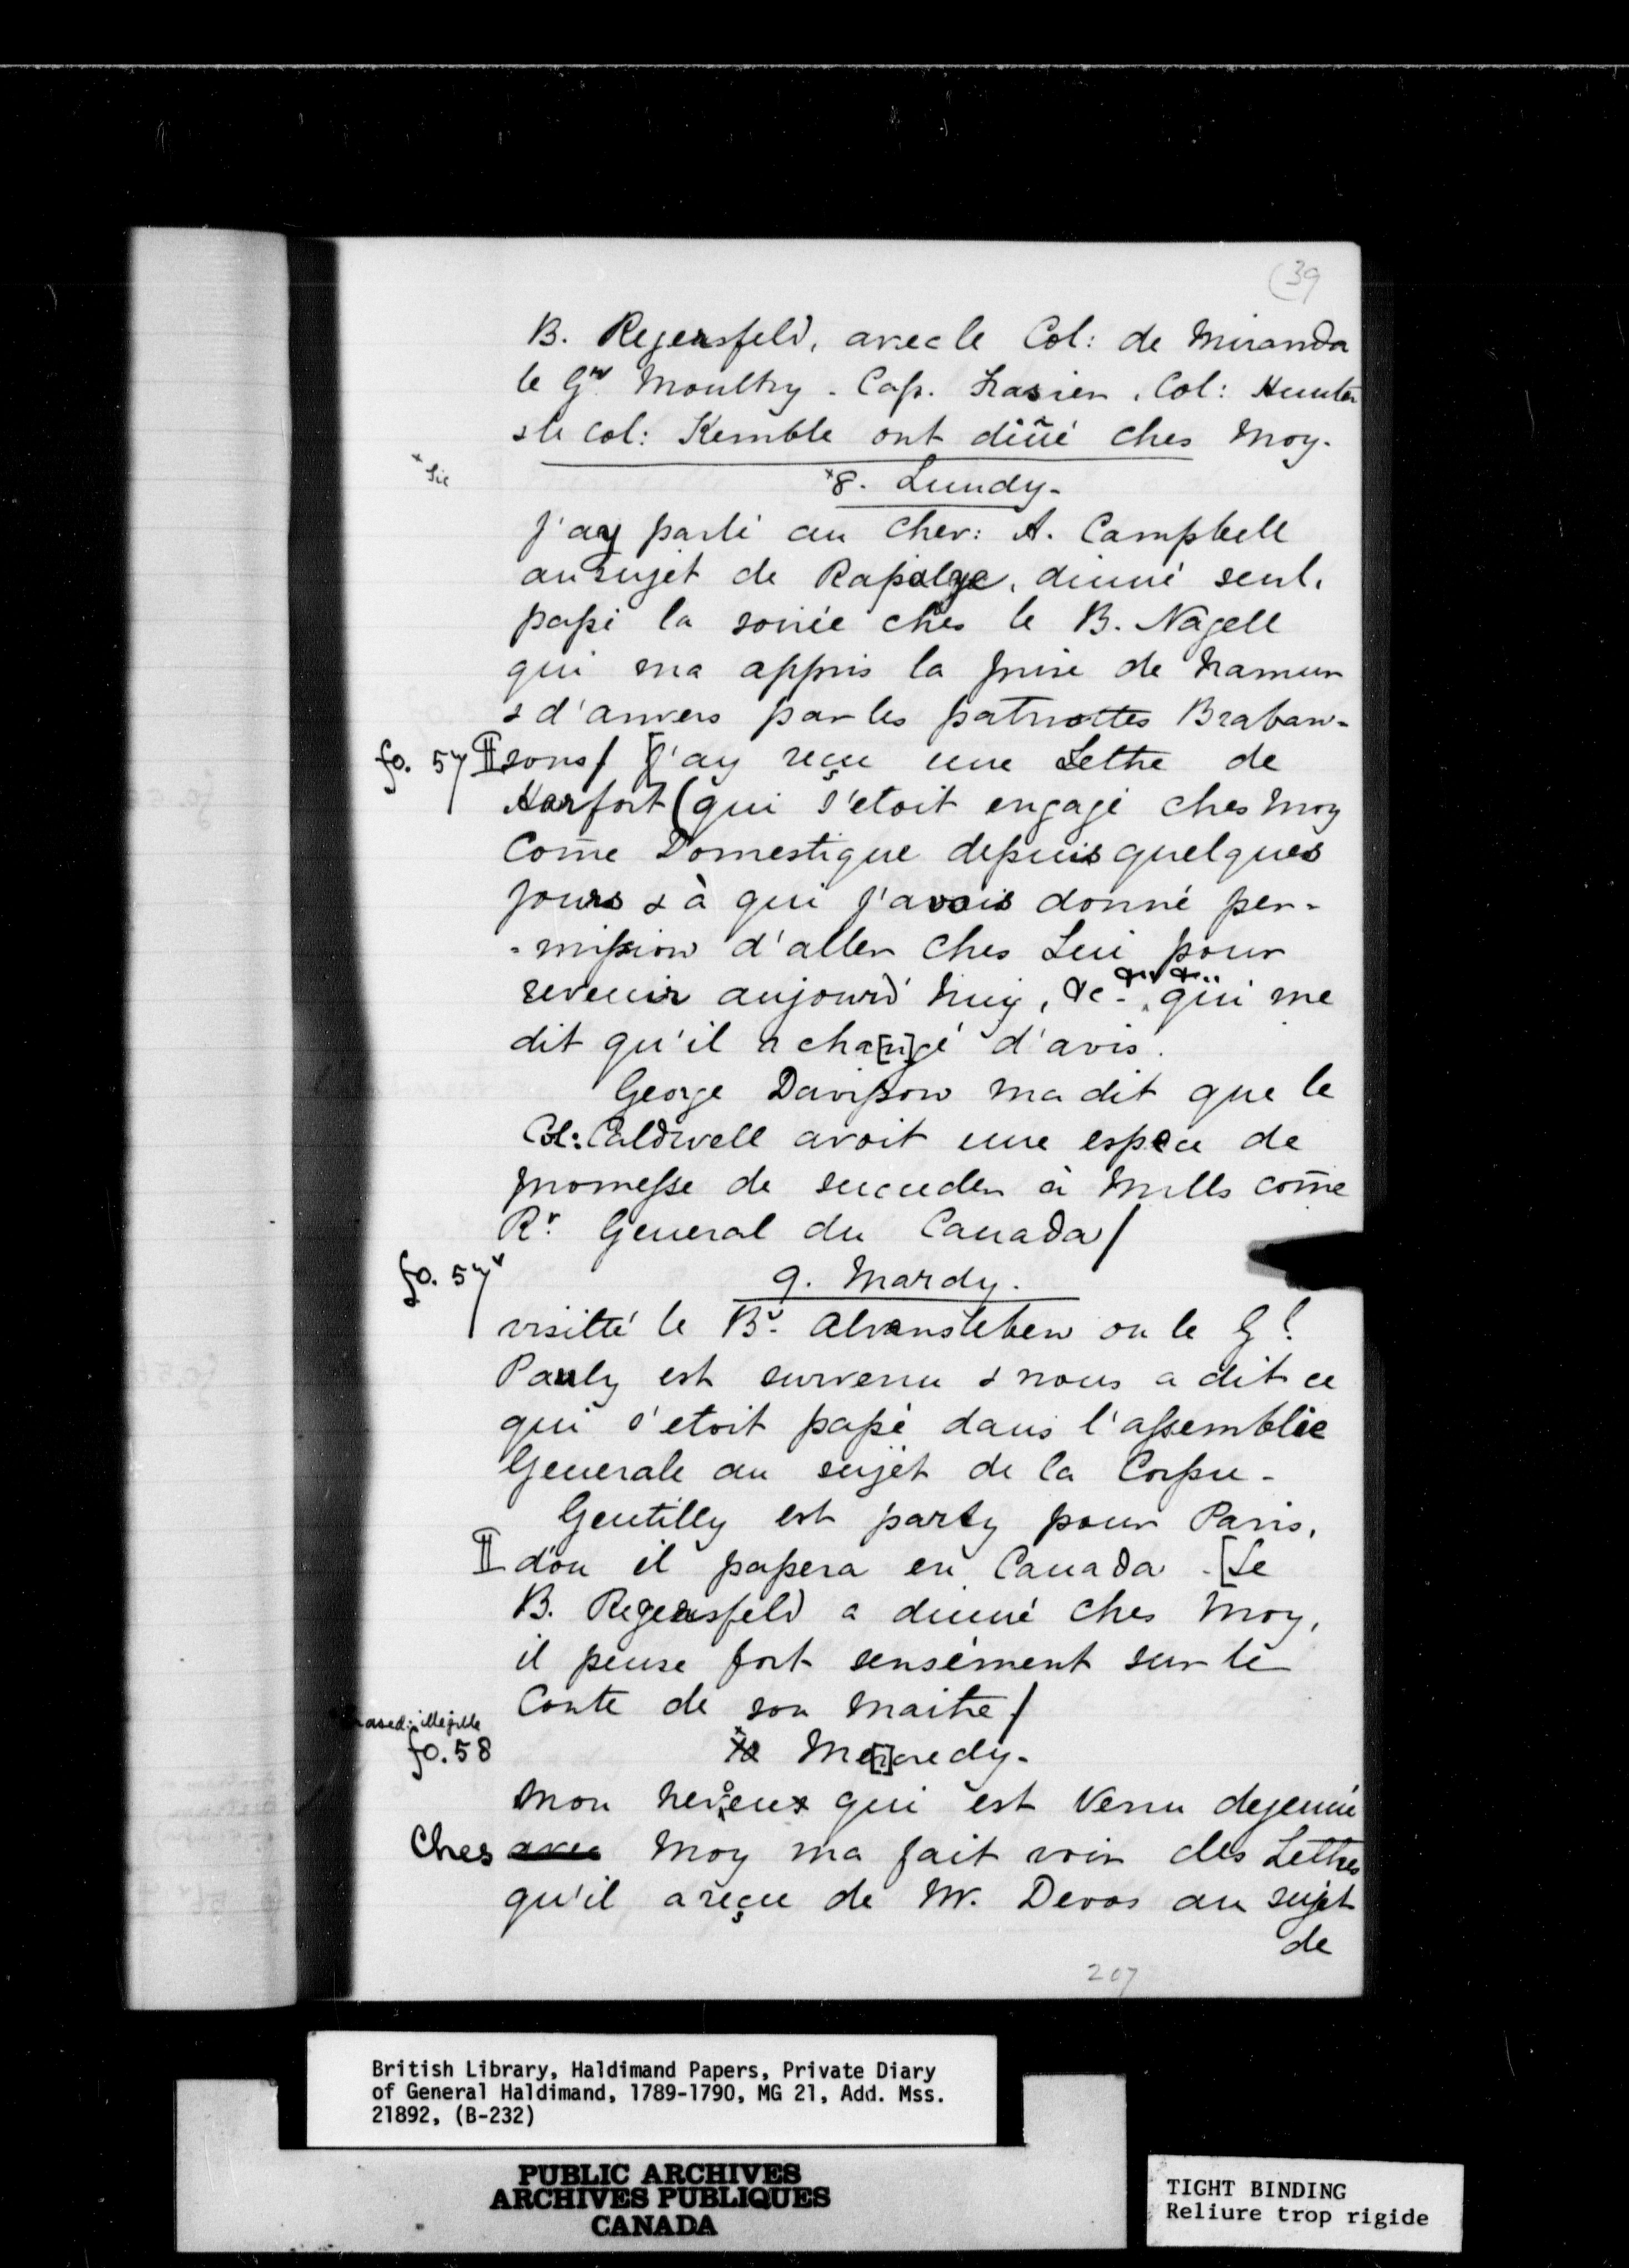 (39
B. Regensfeld, avec le Col: de Miranda
le Gr. Moultry - Cap. Frasier, Col: Hunter
& le Col: Kemble ont dîñé ches Moy.
x Sic
x8. Lundy.
J'ay parlé au Cher: A. Campbell
au sujet de Rapalye, dinné seul,
passé la soirée chés le B. Nagell
qui ma appris la prise de Namur
& d'anvers par les patriottes Braban-
fo. 57
sons/ [J'ay reçu une Lettre de
Harfort (qui s'etoit engagé ches Moy
Come Domestique depuis quelques
jours & à qui j'avois donné per-
-mission d'aller ches Lui pour
revenir aujourd'huy, &c-, qui me
dit qu'il a cha[n]gé d'avis.
George Davisson ma dit que le
Col: Caldwell avoit une espece de
promesse de succeder à Mills come
Rr. General du Canada/
fo. 57v
9. Mardy.
visitté le Br. Alvensleben ou le Gl.
Pauly est survenu & nous a dit ce
qui s'etoit passé dans l'assemblée
Generale au sujet de la Corse -
Gentilly est party pour Paris,
d'ou il passera en Canada. [Le
B. Regensfeld a dinné ches Moy,
il pense fort sensément sur le
Conte de son Maitre/
erased: illegible
fo. 58
x Me[r]credy.
Mon neveux qui est Venu dejeuné
Ches avec Moy ma fait voir des Lettres
qu'il a reçu de Mr. Devos au sujet
de
207
British Library, Haldimand Papers, Private Diary
of General Haldimand, 1789-1790, MG 21, Add. Mss.
21892, (B-232)
PUBLIC ARCHIVES
ARCHIVES PUBLIQUES
CANADA
TIGHT BINDING
Reliure trop rigide